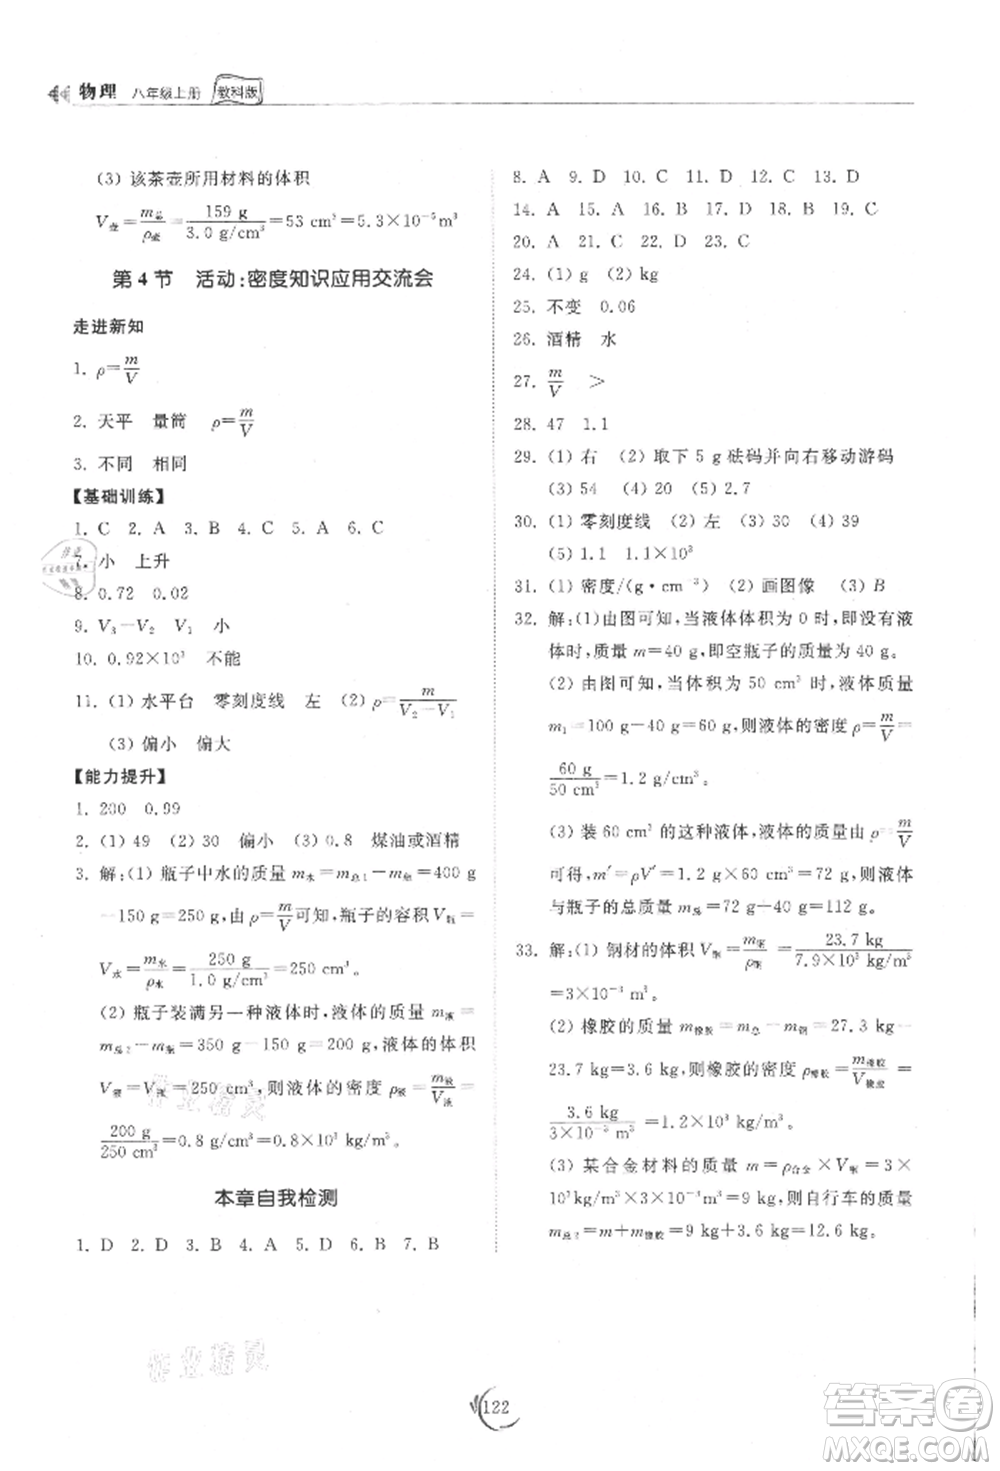 物理 八年级上册 教科版
(3) 该茶壶所用材料的体积
V壶=m壶/ρ壶=159 g/3.0 g/cm³=53 cm³=5.3×10⁻⁵m³
第 4 节 活动:密度知识应用交流会
走进新知
1. ρ=m/V
2. 天平 量筒 ρ=m/V
3. 不同 相同
【基础训练】
1. C 2. A 3. B 4. C 5. A 6. C
7. 小 上升
8. 0.72 0.02
9. V₃-V₂ V₁ 小
10. 0.92×10³ 不能
11. (1) 水平台 零刻度线 左 (2) ρ=m/(V₂-V₁)
(3) 偏小 偏大
【能力提升】
1. 200 0.99
2. (1) 49 (2) 30 偏小 (3) 0.8 煤油或酒精
3. 解:(1) 瓶子中水的质量 m水=m总1-m瓶=400 g
-150 g=250 g,由 ρ=m/V可知,瓶子的容积 V瓶=
V水=m水/ρ水=250 g/1.0 g/cm³=250 cm³。
(2) 瓶子装满另一种液体时,液体的质量 m液=
m总2-m瓶=350 g-150 g=200 g,液体的体积
V液=V瓶=250 cm³,液体的密度 ρ液=m液/V液=
200 g/250 cm³=0.8 g/cm³=0.8×10³ kg/m³。
本章自我检测
1. D 2. D 3. B 4. A 5. D 6. B 7. B
8. A 9. D 10. C 11. C 12. C 13. D
14. A 15. A 16. B 17. D 18. D 19. C
20. A 21. C 22. D 23. C
24. (1) g (2) kg
25. 不变 0.06
26. 酒精 水
27. m/V >
28. 47 1.1
29. (1) 右 (2) 取下 5 g 砝码并向右移动游码
(3) 54 (4) 20 (5) 2.7
30. (1) 零刻度线 (2) 左 (3) 30 (4) 39
(5) 1.1 1.1×10³
31. (1) 密度/(g·cm⁻³) (2) 画图像 (3) B
32. 解:(1)由图可知,当液体体积为 0 时,即没有液
体时,质量 m=40 g,即空瓶子的质量为 40 g。
(2) 由图可知,当体积为 50 cm³ 时,液体质量
m₁=100 g-40 g=60 g,则液体的密度 ρ=m/V=
60 g/50 cm³=1.2 g/cm³。
(3) 装 60 cm³ 的这种液体,液体的质量由 ρ=m/V
可得,m′=ρV′=1.2 g/cm³×60 cm³=72 g,则液体
与瓶子的总质量 m总=72 g+40 g=112 g。
33. 解:(1) 钢材的体积 V钢=m钢/ρ钢=23.7 kg/7.9×10³ kg/m³
=3×10⁻³ m³。
(2) 橡胶的质量 m橡胶=m总-m钢=27.3 kg-
23.7 kg=3.6 kg,则橡胶的密度 ρ橡胶=m橡胶/V橡胶=
3.6 kg/3×10⁻³ m³=1.2×10³ kg/m³。
(3) 某合金材料的质量 m=ρ合金×V钢=3×
10³ kg/m³×3×10⁻³ m³=9 kg,则自行车的质量
m总2=m+m橡胶=9 kg+3.6 kg=12.6 kg。
作业精灵
作业精灵
122
答案圈
MXQE.COM